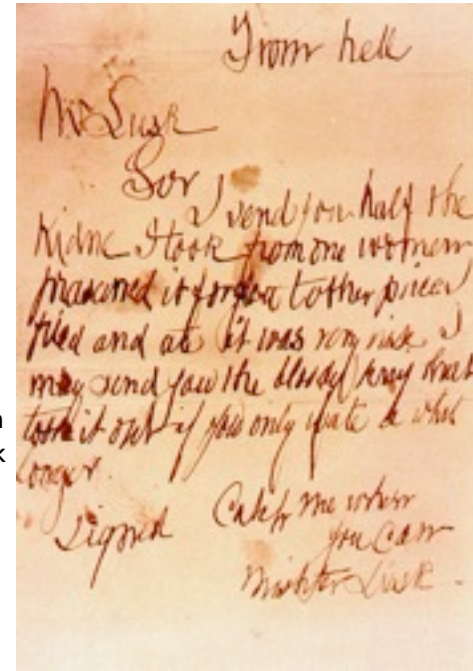 From hell
Mr Lusk
Sor
I send you half the
Kidne I took from one women
prasarved it for you tother piece I
fried and ate it was very nise I
may send you the bloody knif that
took it out if you only wate a whil
longer.
Signed Catch me when
you Can
Mishter Lusk.
n
k